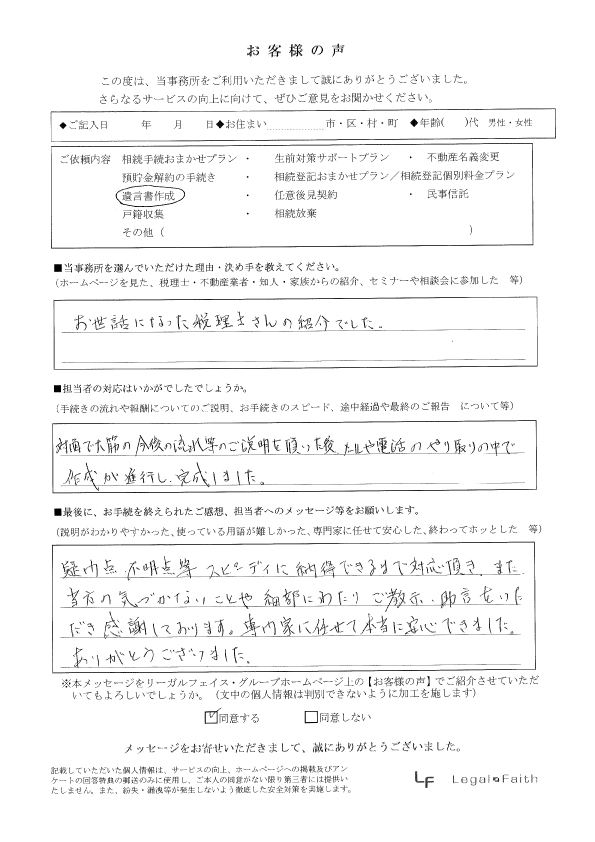 お客様の声
この度は、当事務所をご利用いただきまして誠にありがとうございました。
さらなるサービスの向上に向けて、ぜひご意見をお聞かせください。
◆ご記入日　　年　月　日◆お住まい　　　　　市・区・村・町　◆年齢(　　)代　男性・女性
ご依頼内容　相続手続おまかせプラン・　生前対策サポートプラン　・　不動産名義変更
預貯金解約の手続き　・　相続登記おまかせプラン／相続登記個別料金プラン
遺言書作成　・　任意後見契約　・　民事信託
戸籍収集　・　相続放棄
その他（　　　　　　　　　　）
■当事務所を選んでいただけた理由・決め手を教えてください。
（ホームページを見た、税理士・不動産業者・知人・家族からの紹介、セミナーや相談会に参加した　等）
お世話になった税理士さんの紹介でした。
■担当者の対応はいかがでしたでしょうか。
（手続きの流れや報酬についてのご説明、お手続きのスピード、途中経過や最終のご報告　について等）
対面で大筋の今後の流れ等のご説明を頂いた後、メールや電話のやり取りの中で
作成が進行し、完成しました。
■最後に、お手続を終えられたご感想、担当者へのメッセージ等をお願いします。
（説明がわかりやすかった、使っている用語が難しかった、専門家に任せて安心した、終わってホッとした　等）
疑問点、不明点等 スピーディに納得できるまで対応頂き、また
当方の気づかないことや細部にわたり ご教示、助言をいた
だき感謝しております。専門家に任せて本当に安心できました。
ありがとうございました。
※本メッセージをリーガルフェイス・グループホームページ上の【お客様の声】でご紹介させていただ
いてもよろしいでしょうか。（文中の個人情報は判別できないように加工を施します）
☑同意する　　□同意しない
メッセージをお寄せいただきまして、誠にありがとうございました。
記載していただいた個人情報は、サービスの向上、ホームページへの掲載及びアン
ケートの回答特典の郵送のみに使用し、ご本人の同意がない限り第三者には提供い
たしません。また、紛失・漏洩等が発生しないよう徹底した安全対策を実施します。
LF Legal Faith